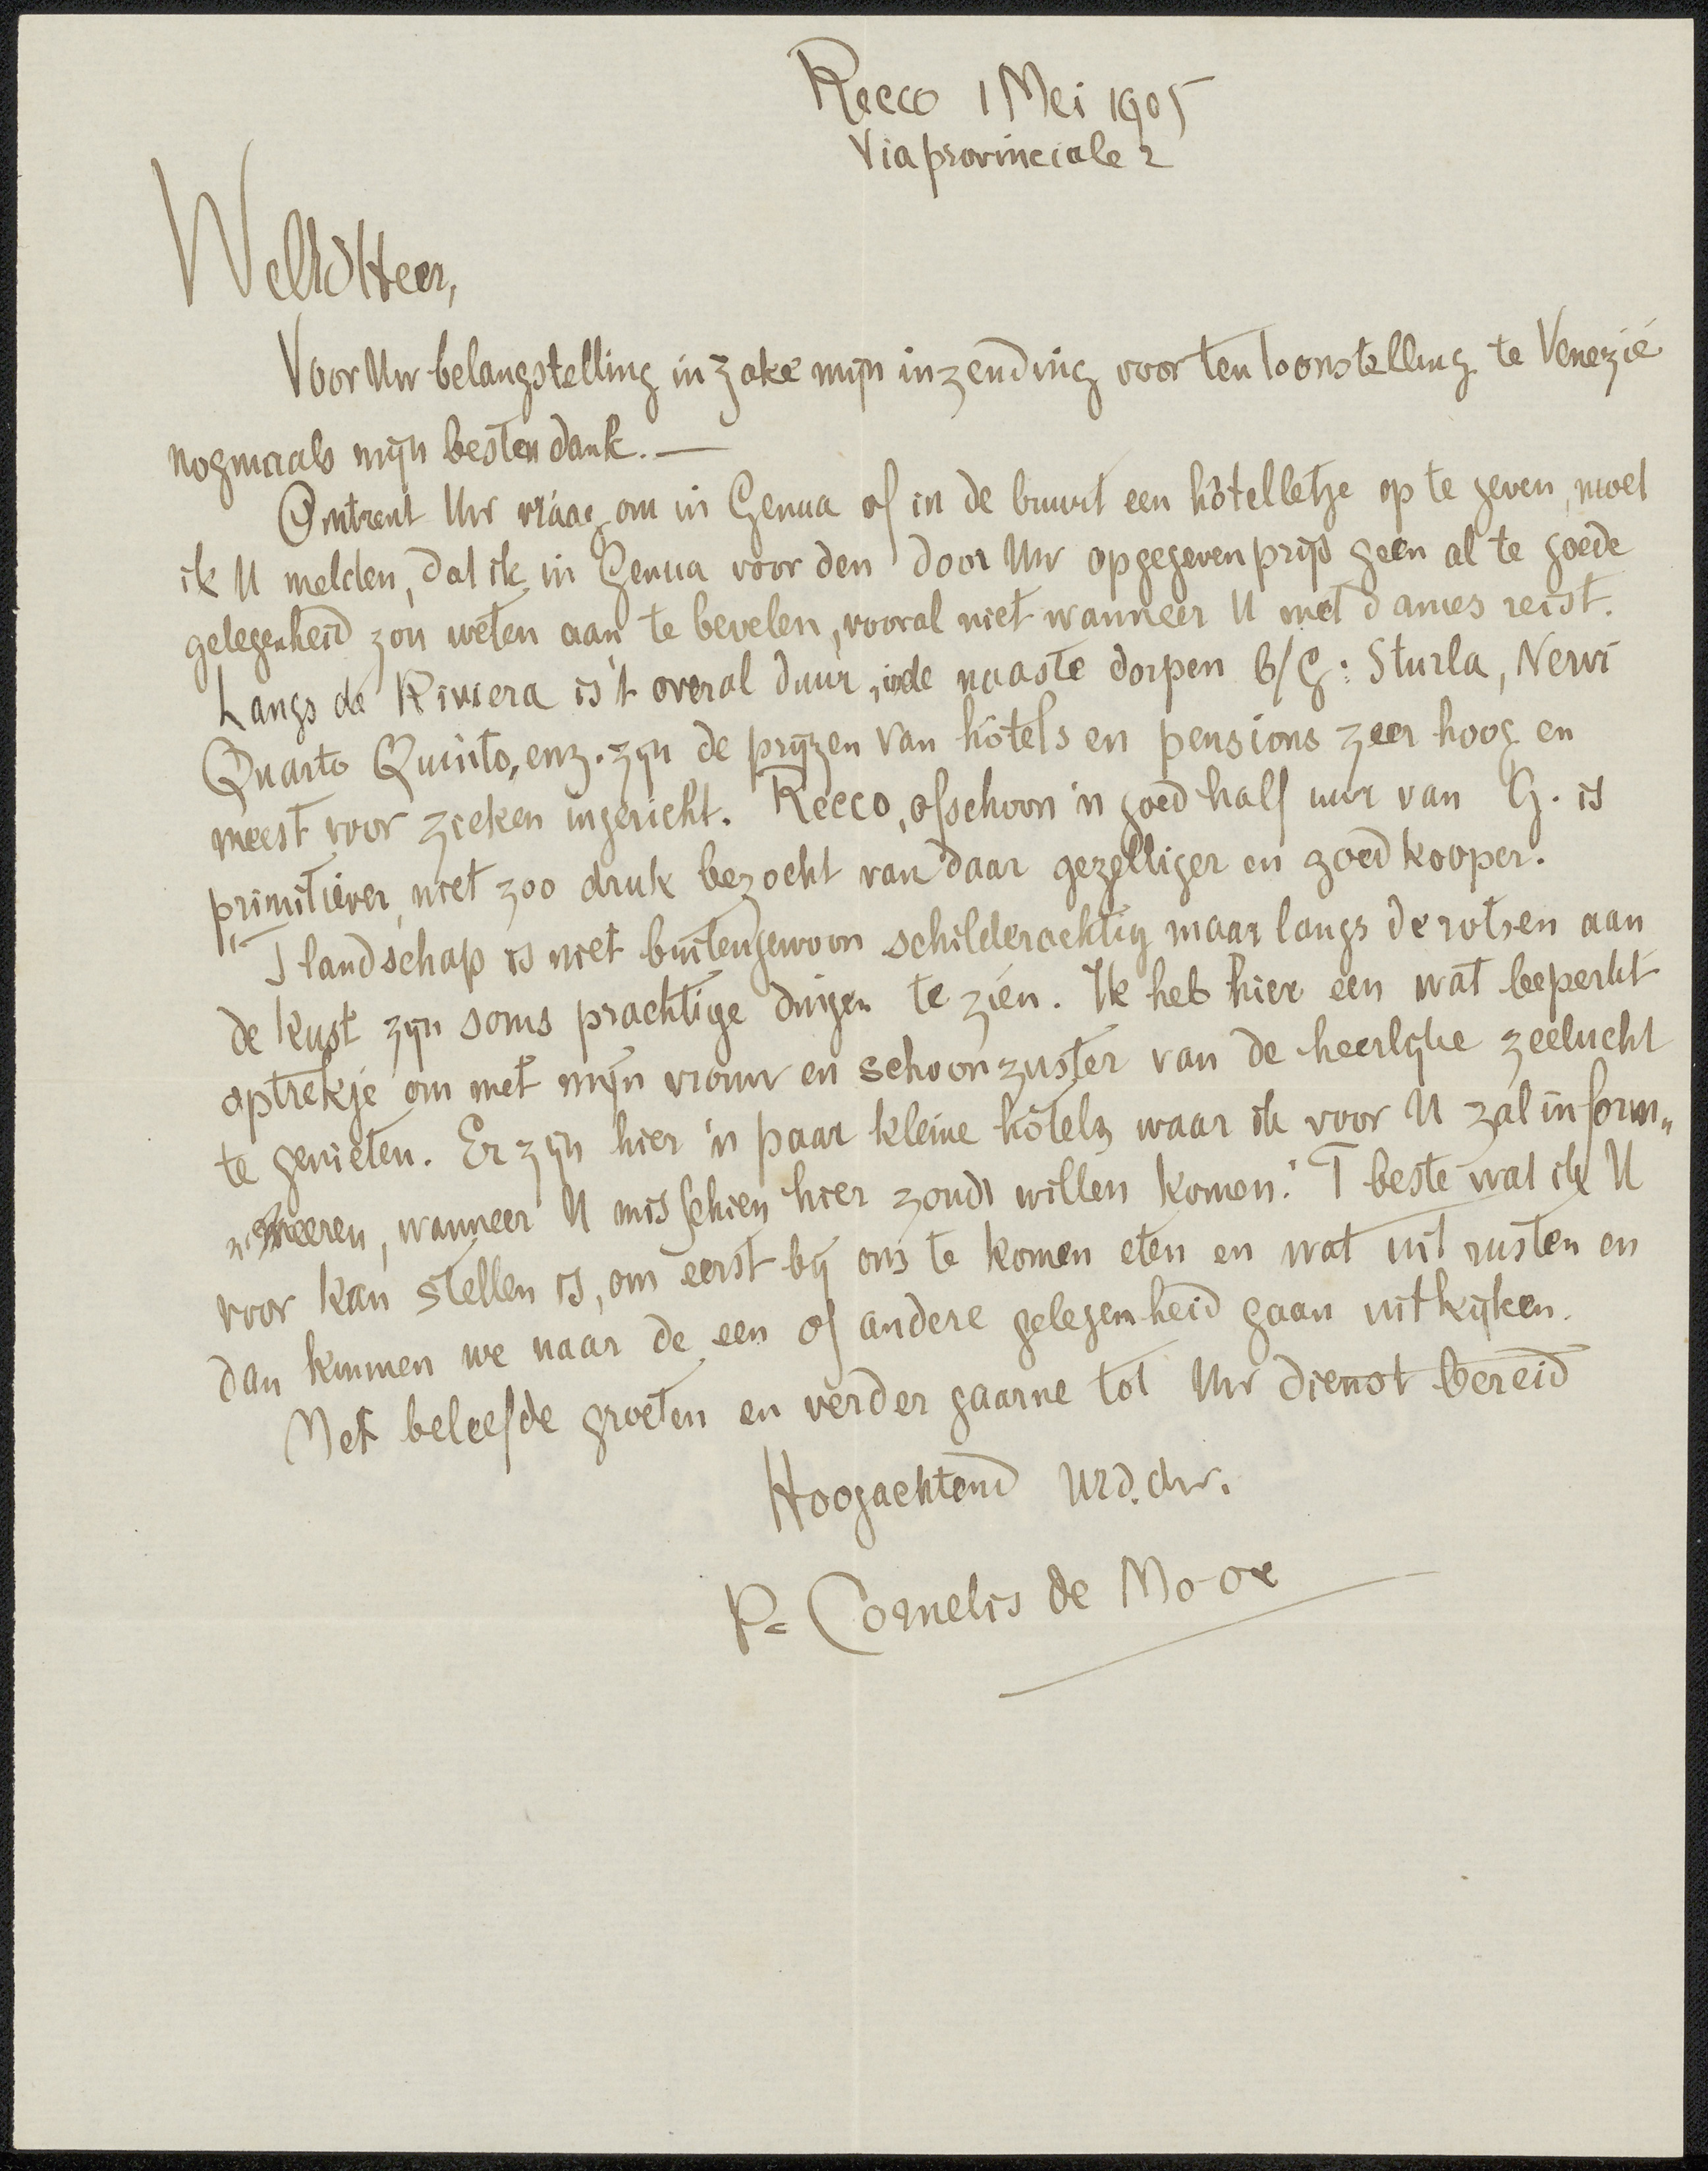 Recco 1 Mei 1905
Via provinciale 2
WelEdHeer,
Voor Uw belangstelling in zake mijn inzending voor tentoonstelling te Venezië
nogmaals mijn besten dank. —
Omtrent Uw vraag om in Genua of in de buurt een hôtelletje op te geven, moet
ik U melden, dat ik in Genua voor den door Uw opgegeven prijs geen al te goede
gelegenheid zou weten aan te bevelen, vooral niet wanneer U met dames reist.
Langs de Riviera is 't overal duur, in de naaste dorpen b/G: Sturla, Nervi
Quarto Quinto, enz. zijn de prijzen van hôtels en pensions zeer hoog en
meest voor zieken ingericht. Recco, ofschoon 'n goed half uur van G. is
primitiever, niet zoo druk bezocht van daar gezelliger en goedkooper.
'T landschap is niet buitengewoon schilderachtig maar langs de rotsen aan
de kust zijn soms prachtige dingen te zien. Ik heb hier een wat beperkt
optrekje om met mijn vrouw en schoonzuster van de heerlijke zeelucht
te genieten. Er zijn hier 'n paar kleine hôtels waar ik voor U zal inform„
„meeren, wanneer U misschien hier zoudt willen komen. 'T beste wat ik U
voor kan stellen is, om eerst bij ons te komen eten en wat uit rusten en
dan kunnen we naar de een of andere gelegenheid gaan uitkijken.
Met beleefde groeten en verder gaarne tot Uw dienst bereid
Hoogachtend Uwd. dw.
P= Cornelis de Moor